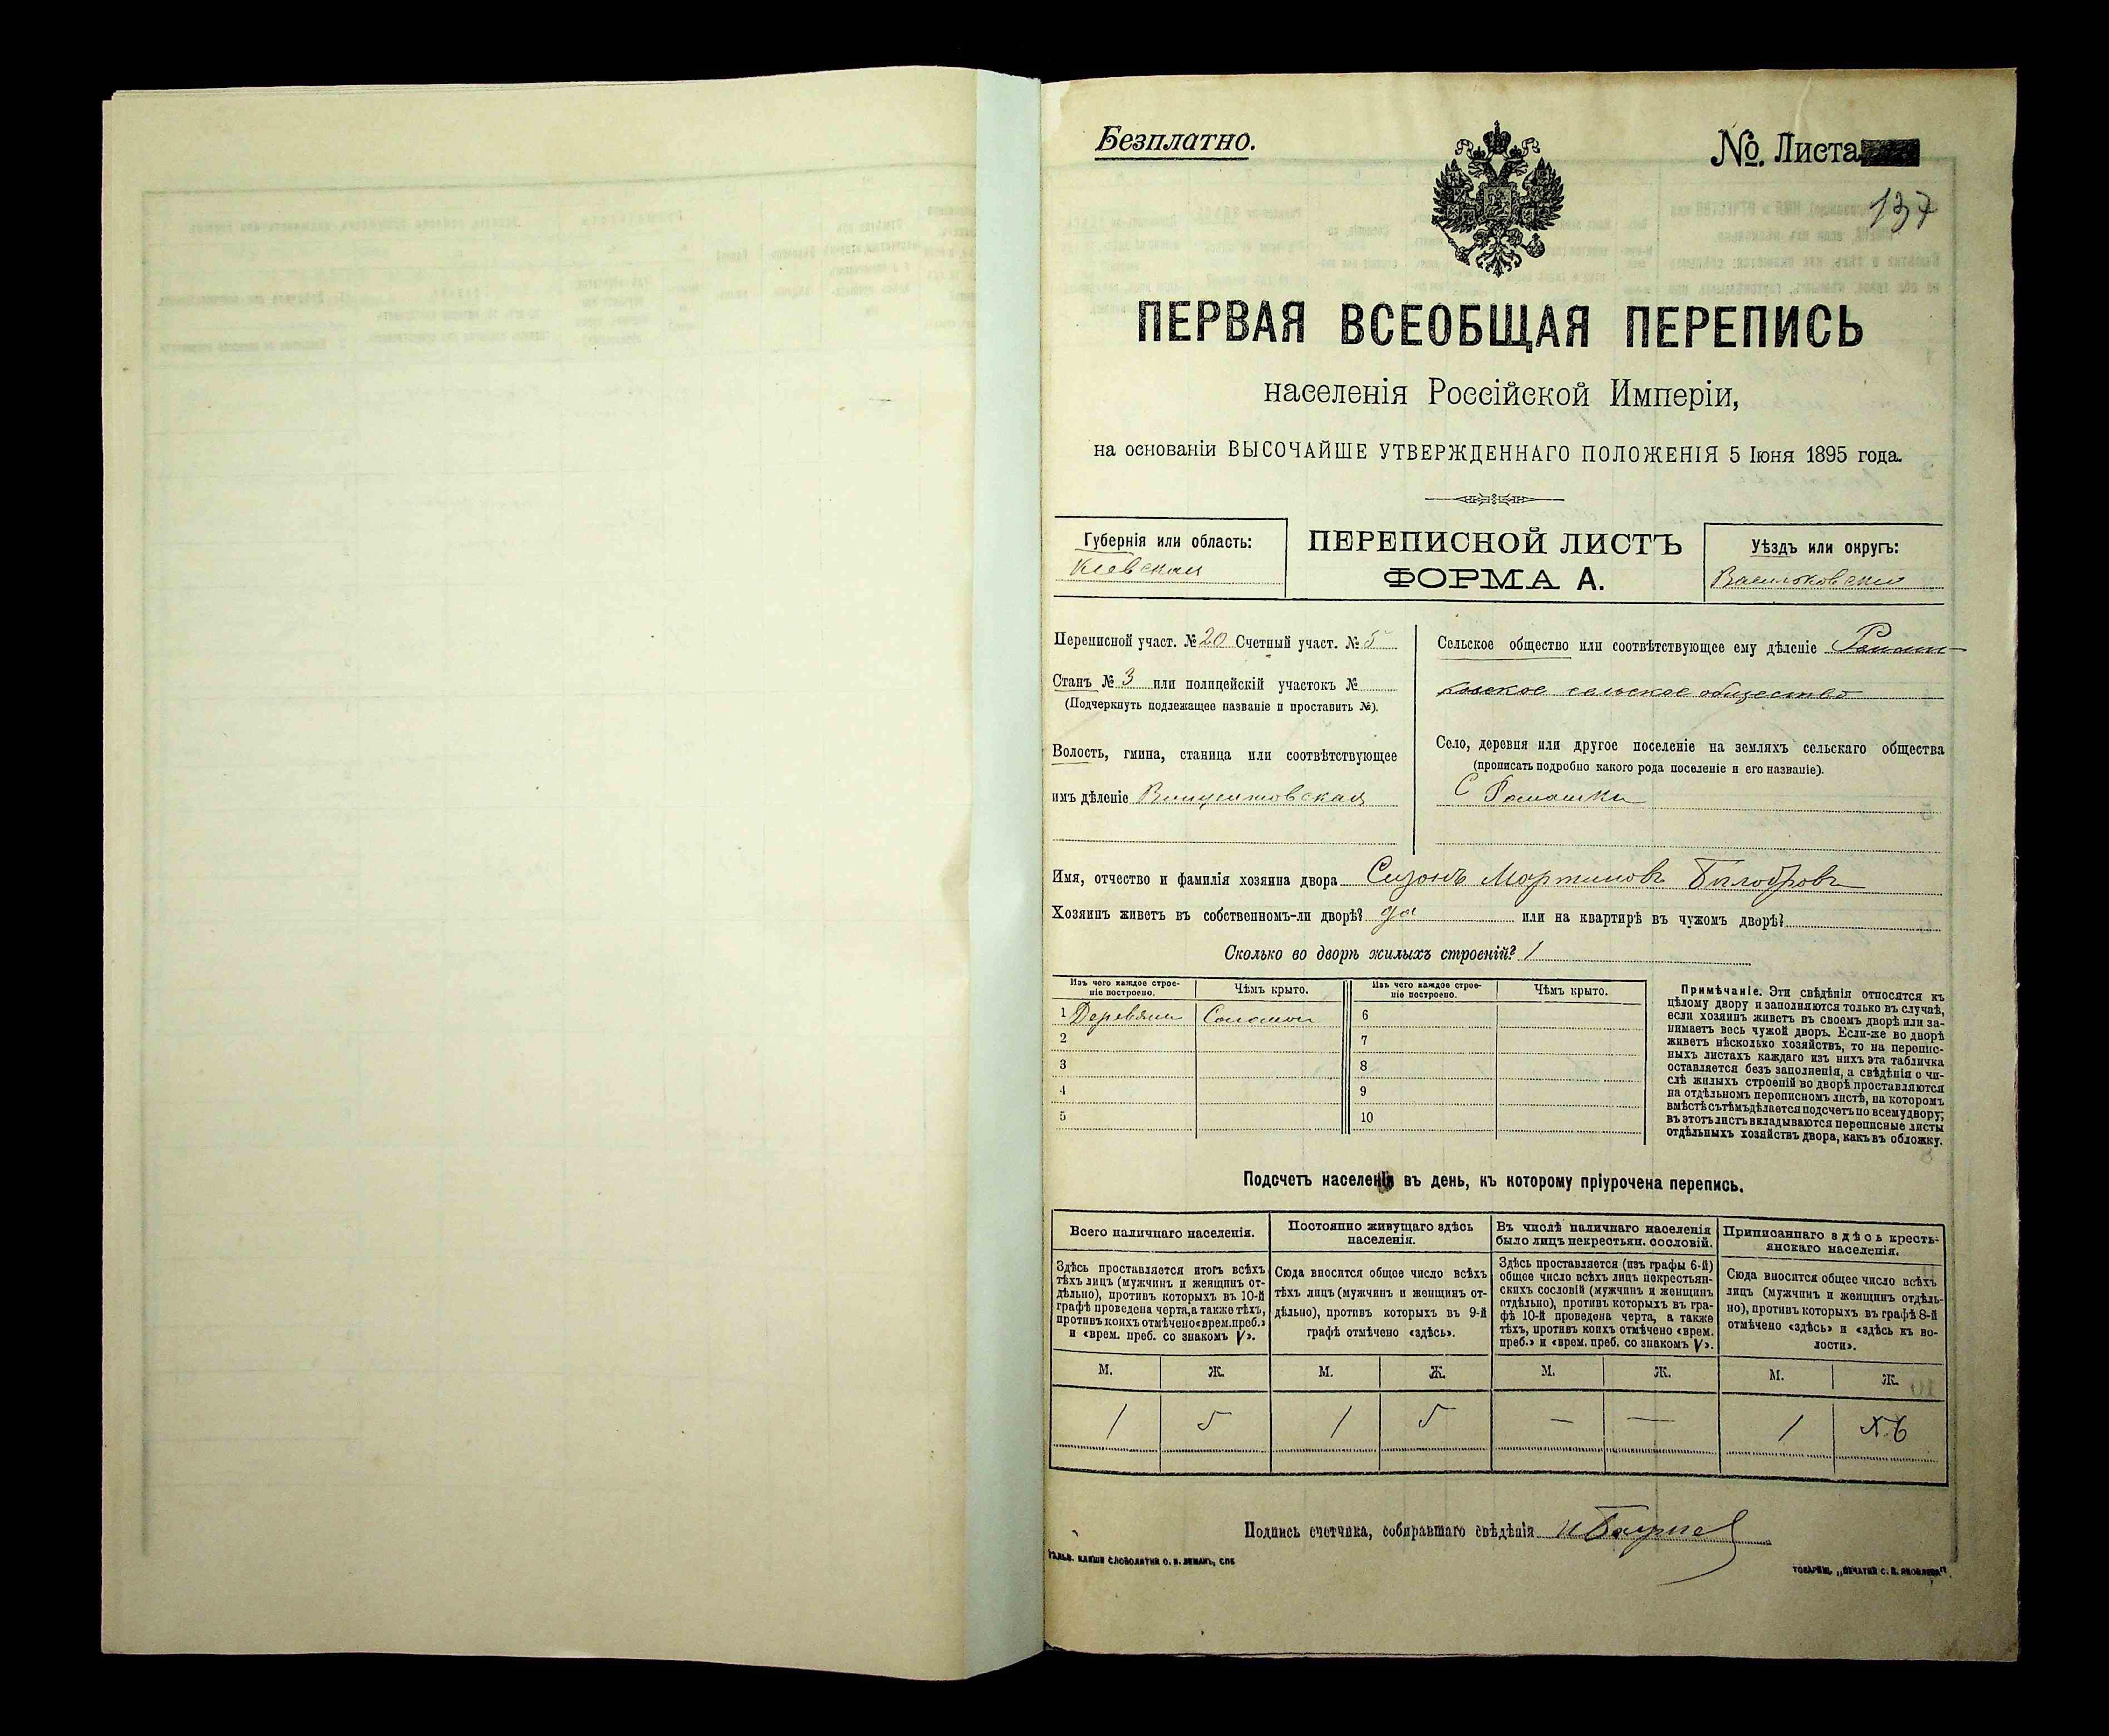 Безплатно.
№ Листа
137
ПЕРВАЯ ВСЕОБЩАЯ ПЕРЕПИСЬ
населенія Россійской Имперіи,
на основаніи ВЫСОЧАЙШЕ УТВЕРЖДЕННАГО ПОЛОЖЕНІЯ 5 Іюня 1895 года.
Губернія или область:
Кіевская
ПЕРЕПИСНОЙ ЛИСТЪ
ФОРМА А.
Уѣздъ или округъ:
Васильковскій
Переписной участ. № 20 Счетный участ. № 5
Станъ № 3 или полицейскій участокъ №
(Подчеркнуть подлежащее названіе и проставить №).
Волость, гмина, станица или соотвѣтствующее
имъ дѣленіе Винцентовская
Сельское общество или соотвѣтствующее ему дѣленіе Ромаш-
ковское сельское общество
Село, деревня или другое поселеніе на земляхъ сельскаго общества
(прописать подробно какого рода поселеніе и его названіе).
С Ромашки
Имя, отчество и фамилія хозяина двора Сизонъ Мартиновъ
Хозяинъ живетъ въ собственномъ-ли дворѣ? да или на квартирѣ въ чужомъ дворѣ?
Сколько во дворѣ жилыхъ строеній? 1
Изъ чего каждое строе-
ніе построено.
Чѣмъ крыто.
Изъ чего каждое строе-
ніе построено.
Чѣмъ крыто.
1 Деревяни Соломой 6
2 7
3 8
4 9
5 10
Примѣчаніе. Эти свѣдѣнія относятся къ
цѣлому двору и заполняются только въ случаѣ,
если хозяинъ живетъ въ своемъ дворѣ или за-
нимаетъ весь чужой дворъ. Если-же во дворѣ
живетъ нѣсколько хозяйствъ, то на перепис-
ныхъ листахъ каждаго изъ нихъ эта табличка
оставляется безъ заполненія, а свѣдѣнія о чи-
слѣ жилыхъ строеній во дворѣ проставляются
на отдѣльномъ переписномъ листѣ, на которомъ
вмѣстѣ съ тѣмъ дѣлается подсчетъ по всему двору;
въ этотъ листъ вкладываются переписные листы
отдѣльныхъ хозяйствъ двора, какъ въ обложку.
Подсчетъ населенія въ день, къ которому пріурочена перепись.
Всего наличнаго населенія.
Постоянно живущаго здѣсь
населенія.
Въ числѣ наличнаго населенія
было лицъ некрестьян. сословій.
Приписаннаго здѣсь кресть-
янскаго населенія.
Здѣсь проставляется итогъ всѣхъ
тѣхъ лицъ (мужчинъ и женщинъ от-
дѣльно), противъ которыхъ въ 10-й
графѣ проведена черта, а также тѣхъ,
противъ коихъ отмѣчено «врем. преб.»
и «врем. преб. со знакомъ V».
Сюда вносится общее число всѣхъ
тѣхъ лицъ (мужчинъ и женщинъ от-
дѣльно), противъ которыхъ въ 9-й
графѣ отмѣчено «здѣсь».
Здѣсь проставляется (изъ графы 6-й)
общее число всѣхъ лицъ некрестьян-
скихъ сословій (мужчинъ и женщинъ
отдѣльно), противъ которыхъ въ гра-
фѣ 10-й проведена черта, а также
тѣхъ, противъ коихъ отмѣчено «врем.
преб.» и «врем. преб. со знакомъ V».
Сюда вносится общее число всѣхъ
лицъ (мужчинъ и женщинъ отдѣль-
но), противъ которыхъ въ графѣ 8-й
отмѣчено «здѣсь» и «здѣсь къ во-
лости».
М. Ж. М. Ж. М. Ж. М. Ж.
1 5 1 5 — — 1 6
Подпись счетчика, собиравшаго свѣдѣнія
ГАЛЬВ. КЛИШЕ СЛОВОЛИТНИ О. И. ЛЕМАНЪ, СПБ
ТОВАРИЩ. „ПЕЧАТНИ С. П. ЯКОВЛЕВА".